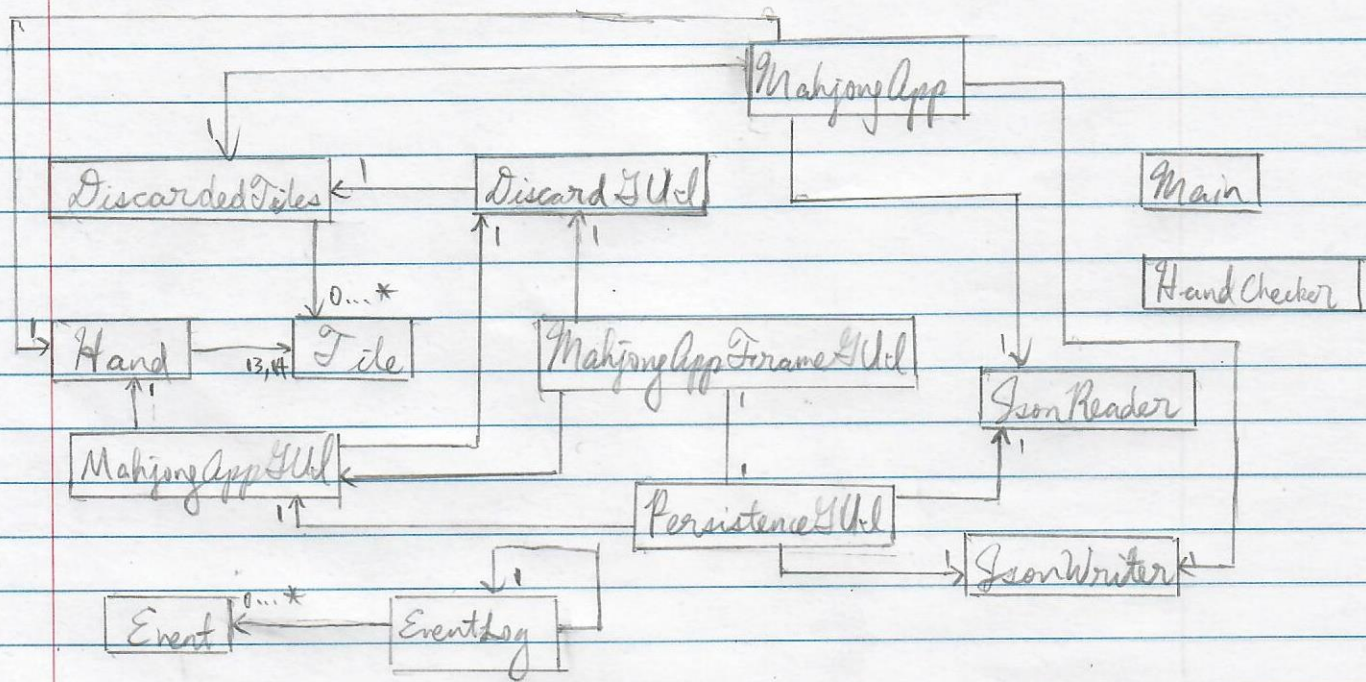 MahjongApp
1
DiscardedTiles
1
DiscardGUI
Main
1
1
0...*
HandChecker
1
Hand
13,14
Tile
MahjongAppFrameGUI
1
1
1
JsonReader
1
MahjongAppGUI
1
1
PersistenceGUI
1
JsonWriter
1
1
0...*
Event
EventLog